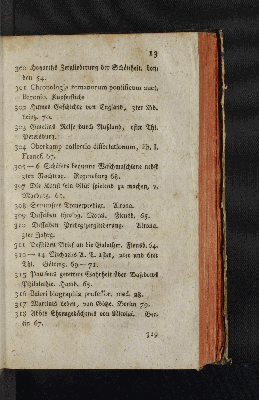 13
300 Hogarths Zergliederung der Schönheit. Lon
don 54.
301 Chronologia romanorum pontificum auct.
Baronio. Kupferstich
302 Humes Geschichte von England, 3ter Bd.
Leipz. 70.
303 Gmelins Reise durch Rußland, 1ster Thl.
Petersburg.
304 Oberkamp collectio dissertationum, Th. I.
Francf. 67.
305–6 Schäfers bequeme Waschmaschiene nebst
2ten Nachtrag. Regensburg 68
307 Die Kunst sein Glük spielend zu machen,
Marburg.
308 Struensees Trauerpredigt. Altona.
309 Desselben theolog. Moral. Flensb. 65.
310 Desselben Predigtzergliederung. Altona.
3ter Jahrg.
311 Desselben Brief an die Galather. Flensb. 64.
312–14 Michaelis A. T. 1ster, 2ter und 6ter
Thl. Götting. 69–71.
315 Paulsens gerettete Wahrheit über Basedows
Philalethie. Hamb. 65.
316 biographia professor. med. 28.
317 Martinis Leben, von Göze. Berlin 79.
318 Abbts Ehrengedächtniß von Nicolai. Ber-
lin 67.
319